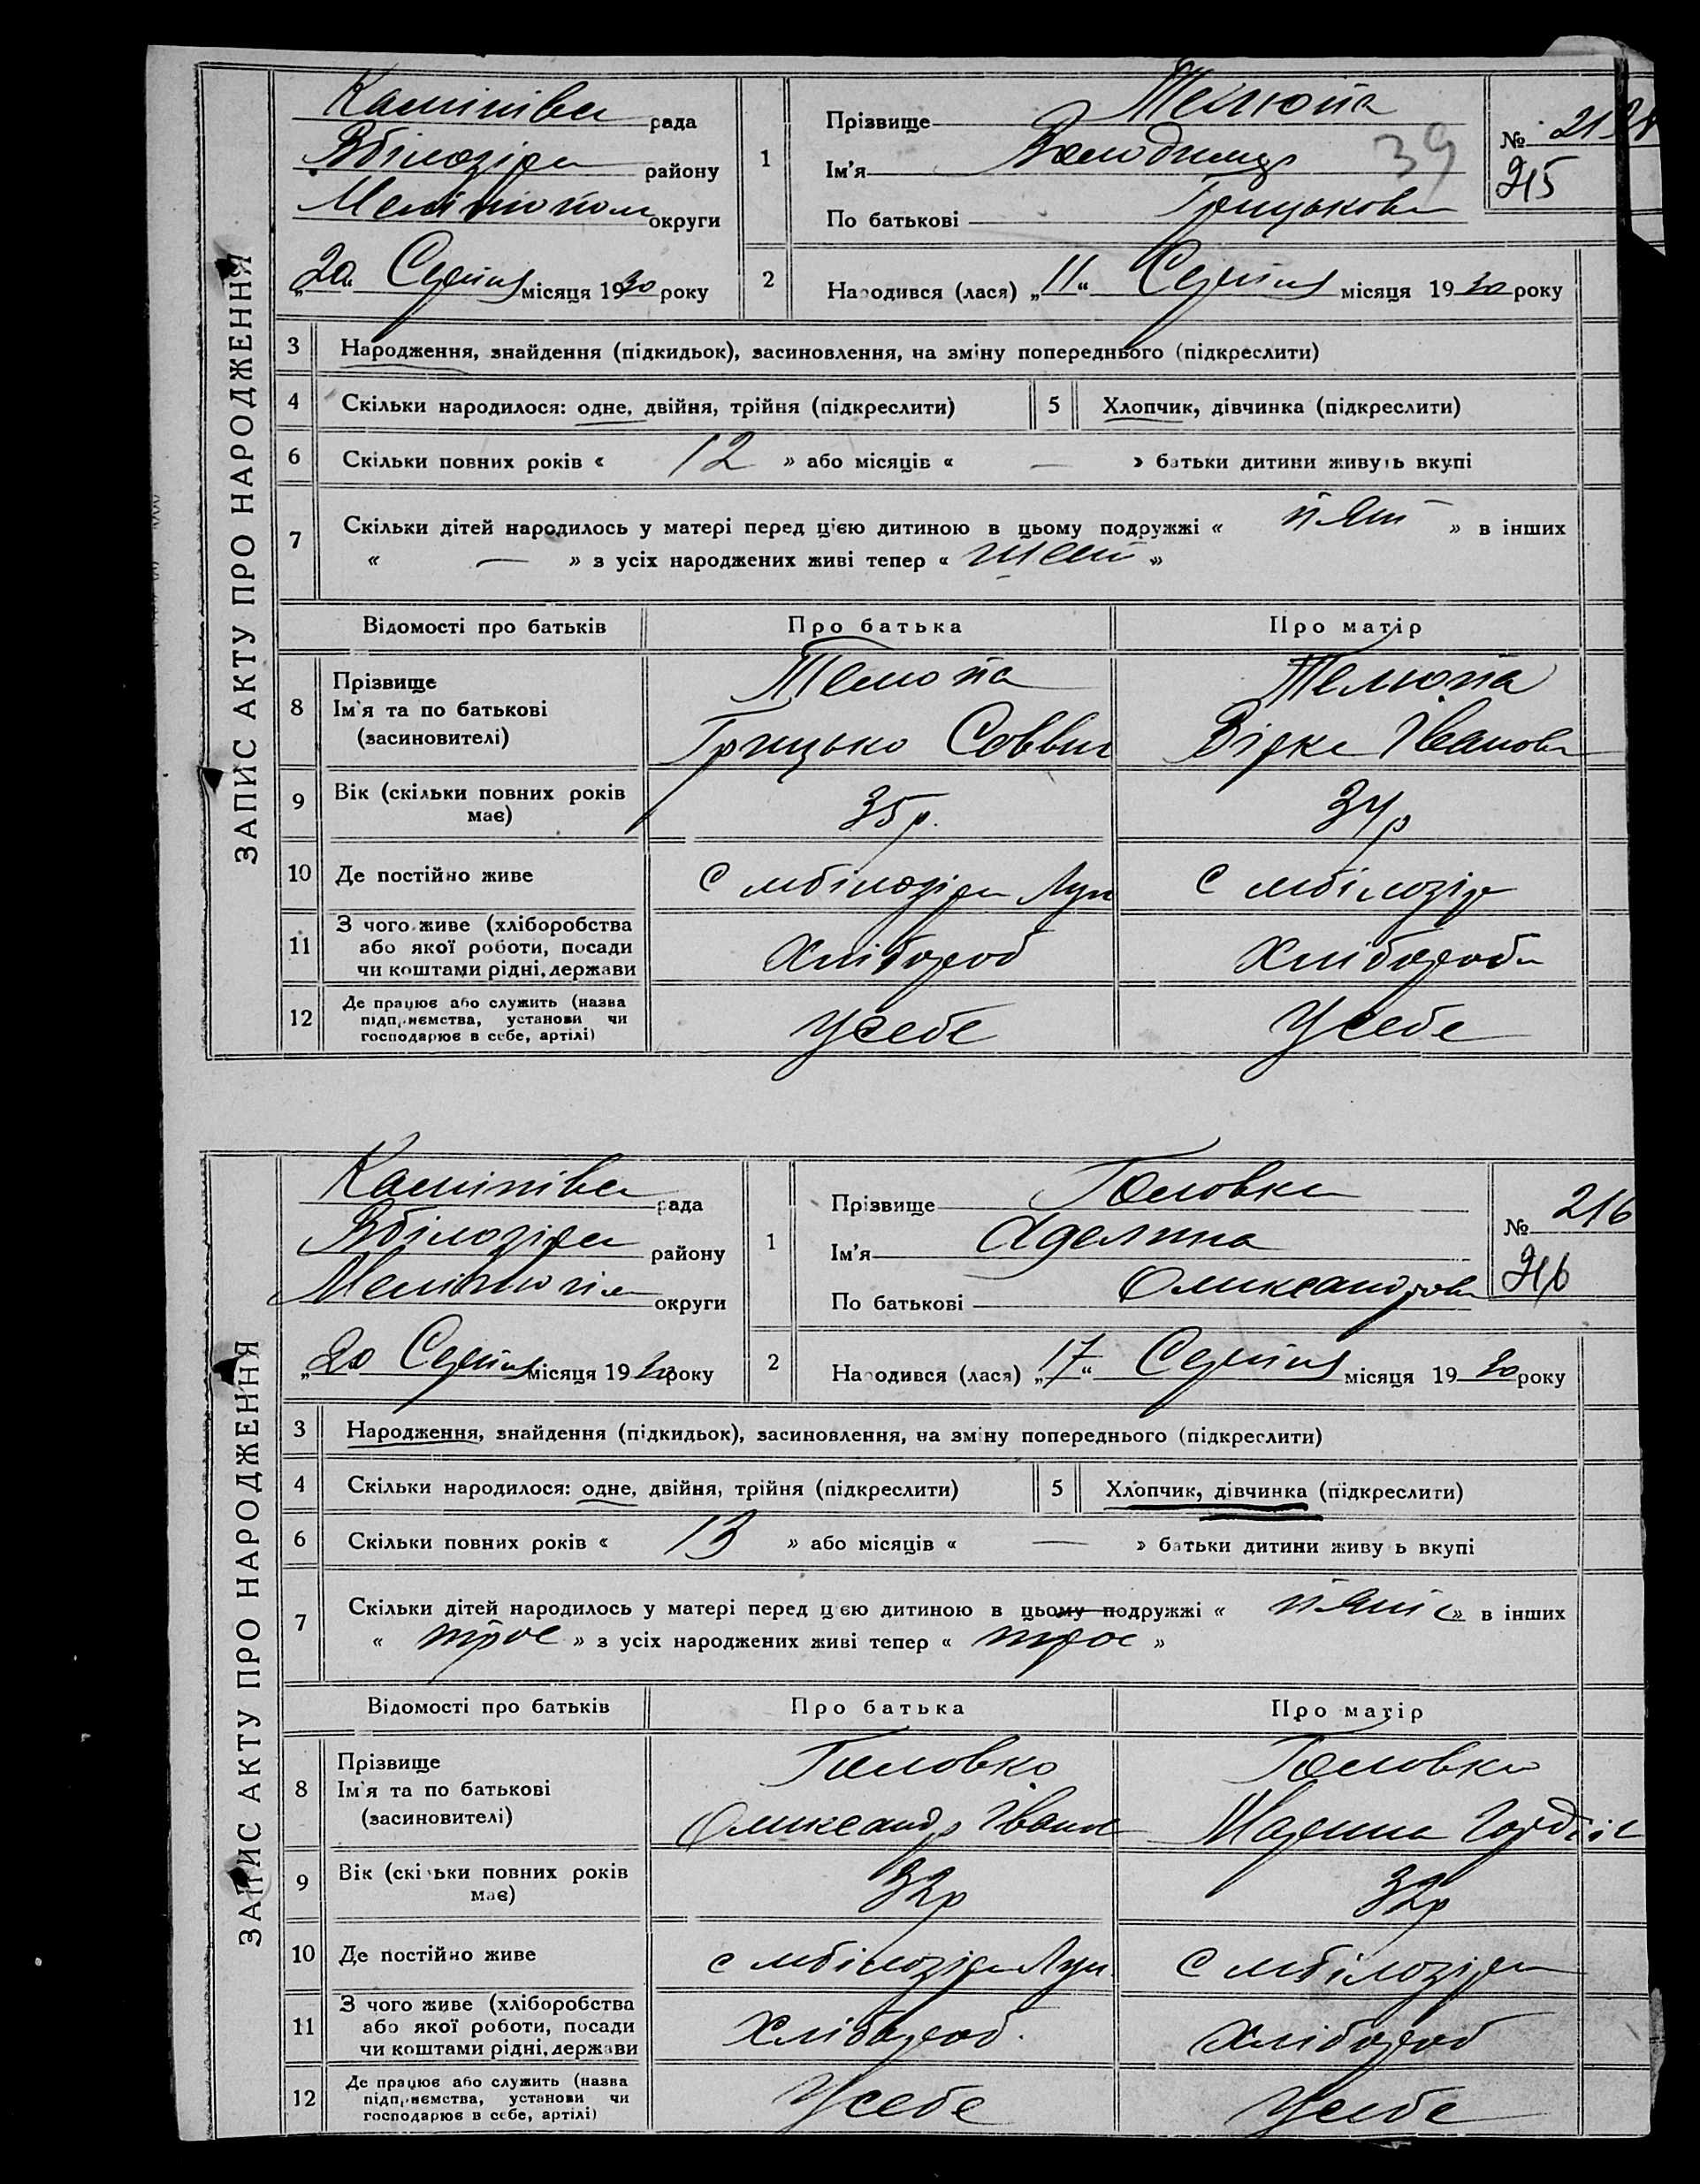 ЗАПИС АКТУ ПРО НАРОДЖЕННЯ
рада
району
Мелітополь округи
„20“ Серпня місяця 1930 року
1
Прізвище
Ім'я Володимир
По батькові Грицькова
39
№
215
2
Народився (лася) „11“ Серпня місяця 1930 року
3 Народження, знайдення (підкидьок), засиновлення, на зміну попереднього (підкреслити)
4 Скільки народилося: одне, двійня, трійня (підкреслити) 5 Хлопчик, дівчинка (підкреслити)
6 Скільки повних років « 12 » або місяців « — » батьки дитини живуть вкупі
7 Скільки дітей народилось у матері перед цією дитиною в цьому подружжі « пять » в інших
« — » з усіх народжених живі тепер « шість »
Відомості про батьків Про батька Про матір
8 Прізвище
Ім'я та по батькові Грицько Іванова
(засиновителі)
9 Вік (скільки повних років має) 35 р. 34 р
10 Де постійно живе
11 З чого живе (хліборобства або якої роботи, посади чи коштами рідні, держави Хлібороб Хлібороб
12 Де працює або служить (назва підприємства, установи чи господарює в себе, артілі) У себе У себе
ЗАПИС АКТУ ПРО НАРОДЖЕННЯ
рада
району
округи
„20 Серпня місяця 1930 року
1
Прізвище Головко
Ім'я Аделина
По батькові Олександрова
№ 216
216
2
Народився (лася) „17“ Серпня місяця 1930 року
3 Народження, знайдення (підкидьок), засиновлення, на зміну попереднього (підкреслити)
4 Скільки народилося: одне, двійня, трійня (підкреслити) 5 Хлопчик, дівчинка (підкреслити)
6 Скільки повних років « 13 » або місяців « — » батьки дитини живуть вкупі
7 Скільки дітей народилось у матері перед цією дитиною в цьому подружжі « » в інших
« троє » з усіх народжених живі тепер « троє »
Відомості про батьків Про батька Про матір
8 Прізвище Головко Головко
Ім'я та по батькові Олександр Іван Марина
(засиновителі)
9 Вік (скільки повних років має) 32р 32р
10 Де постійно живе
11 З чого живе (хліборобства або якої роботи, посади чи коштами рідні, держави Хлібороб. Хлібороб
12 Де працює або служить (назва підприємства, установи чи господарює в себе, артілі) У себе У себе